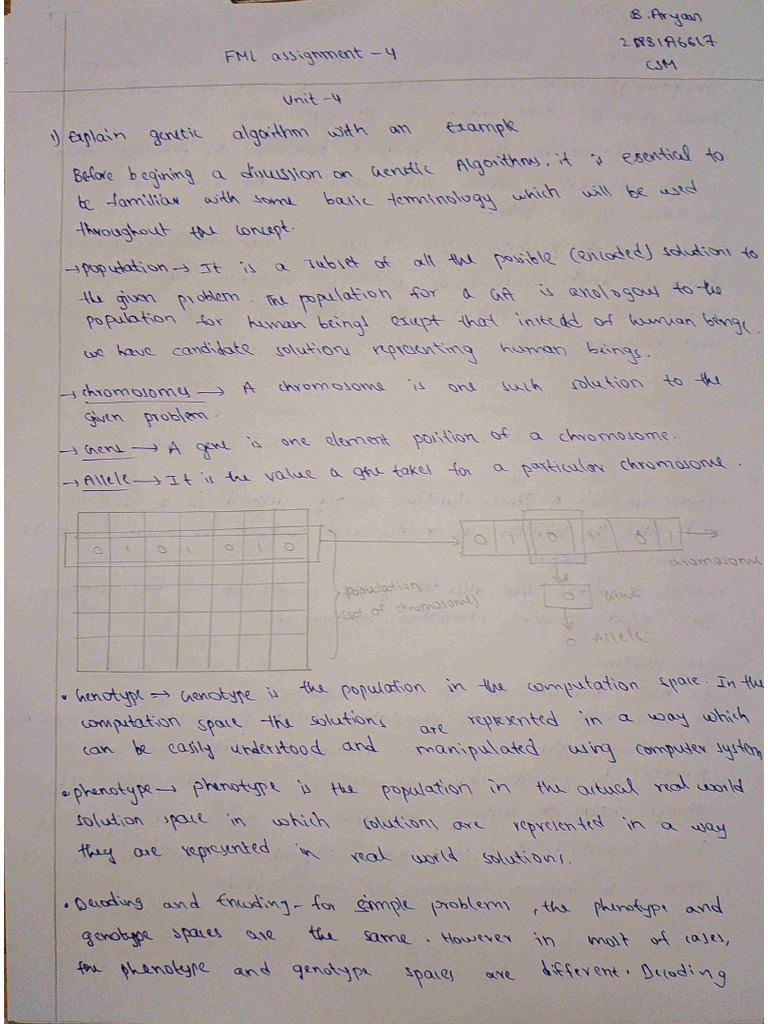 B. Aryan
FML assignment - 4
CSM
Unit - 4
1) Explain genetic algorithm with an Example
Before begining a discussion on Genetic Algorithms, it is esential to
be familiar with some basic terminology which will be used
throughout the concept.
→ population → It is a subset of all the possible (encoded) solutions to
the given problem. The population for a GA is analogous to the
population for human beings except that instead of human beings,
we have candidate solutions representing human beings.
→ chromosomes → A chromosome is one such solution to the
given problem.
→ Gene → A gene is one element position of a chromosome.
→ Allele → It is the value a gene takes for a particular chromosome.
0 1 0 1 0 1 0
0 1 0 1 0 1
chromosome
population
(set of chromosomes)
0 Gene
0 Allele
• Genotype → Genotype is the population in the computation space. In the
computation space the solutions are represented in a way which
can be easily understood and manipulated using computer system
• phenotype → phenotype is the population in the actual real world
solution space in which solutions are represented in a way
they are represented in real world solutions.
• Decoding and Encoding - for simple problems, the phenotype and
genotype spaces are the same. However in most of cases,
the phenotype and genotype spaces are different. Decoding